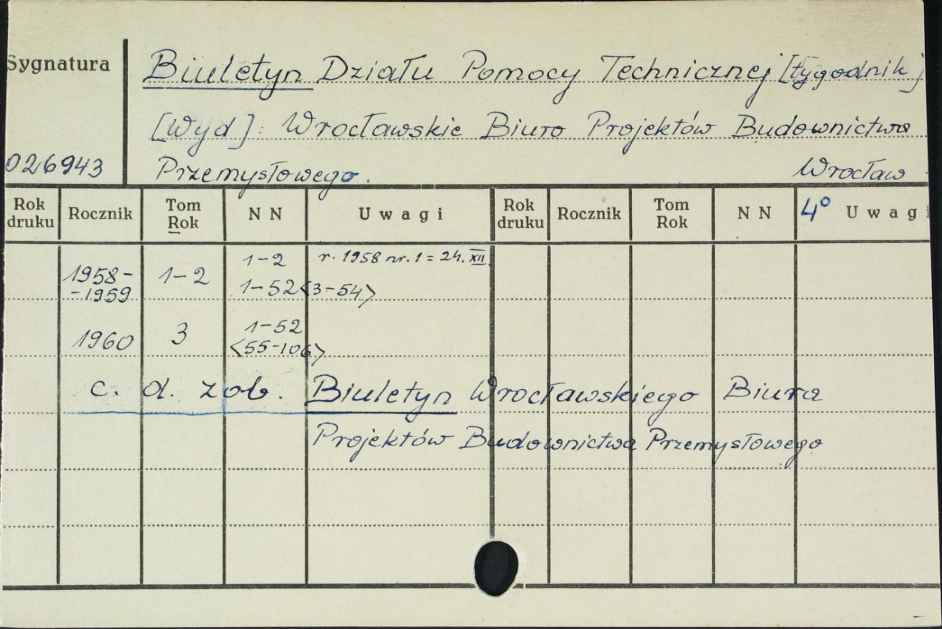 Sygnatura
Biuletyn Działu Pomocy Technicznej [tygodnik]
[Wyd]: Wrocławskie Biuro Projektów Budownictwa
026943 Przemysłowego. Wrocław
Rok druku Rocznik Tom Rok N N Uwagi Rok druku Rocznik Tom Rok N N 4° Uwagi
1958-
-1959 1-2 1-2 r. 1958 nr. 1 = 24. XII
1-52 <3-54>
1960 3 1-52
<55-106>
c. d. zob. Biuletyn Wrocławskiego Biura
Projektów Budownictwa Przemysłowego